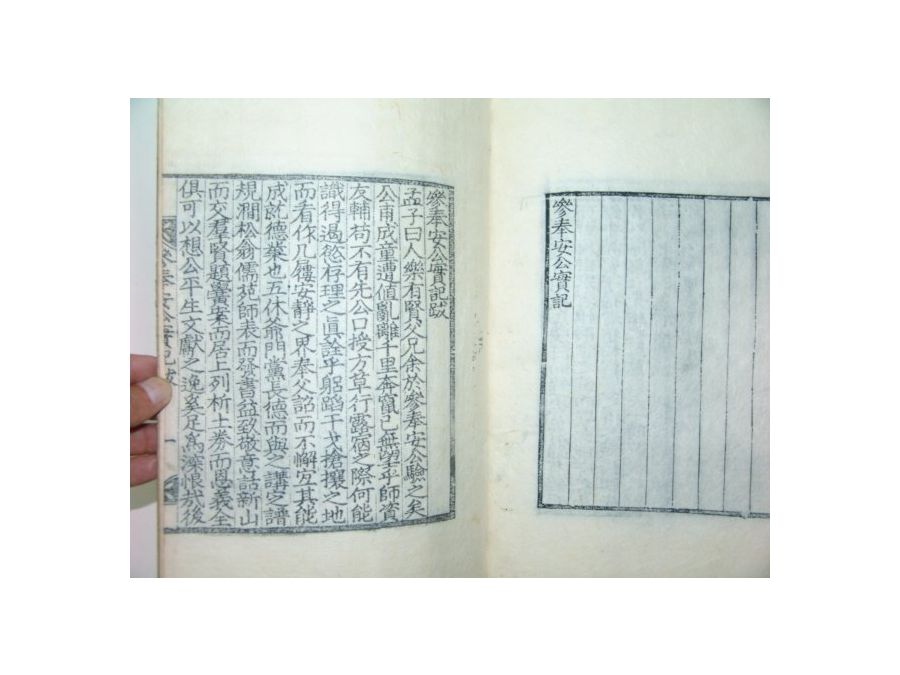 參奉安公實記
參奉安公實記跋
孟子曰人樂有賢父兄余於參奉安公驗之矣
公甫成童遭値亂離千里奔竄已無望乎師資
友輔苟不有先公口授方草行露宿之際何能
識得遏慾存理之眞詮乎躬蹈干戈搶攘之地
而有作几鏤安靜之界奉父詔而不懈宜其能
成就德業也五休翁門黨長德而與之講定譜
規澗松翁儒苑師表而發書益致敬意話新山
而交羣賢題黌案而居上列析土券而恩義全
俱可以想公平生文獻之逸奚足爲深恨哉後
參奉安公實記跋 一